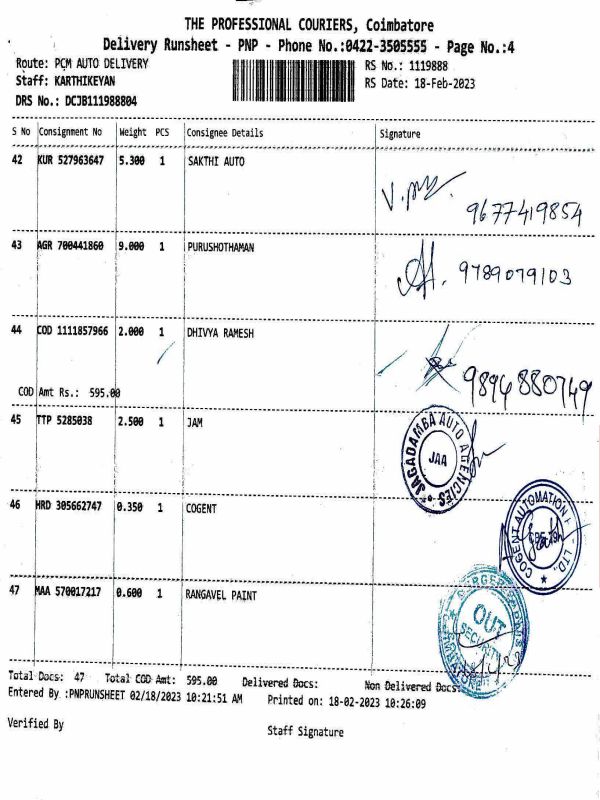 THE PROFESSIONAL COURIERS, Coimbatore
Delivery Runsheet - PNP - Phone No.:0422-3505555 - Page No.:4
Route: PCM AUTO DELIVERY RS No.: 1119888
Staff: KARTHIKEYAN RS Date: 18-Feb-2023
DRS No.: DCJB111988804
S No Consignment No Weight PCS Consignee Details Signature
42 KUR 527963647 5.300 1 SAKTHI AUTO
9677419854
43 AGR 700441860 9.000 1 PURUSHOTHAMAN
9789079103
44 COD 1111857966 2.000 1 DHIVYA RAMESH
9894880749
COD Amt Rs.: 595.00
45 TTP 5285038 2.500 1 JAM
JAGADAMBA AUTO AGENCIES
JAA
46 HRD 305662747 0.350 1 COGENT
COGENT AUTOMATION LTD.
47 MAA 570017217 0.600 1 RANGAVEL PAINT
OUT
SECURITY
Total Docs: 47 Total COD Amt: 595.00 Delivered Docs: Non Delivered Docs:
Entered By :PNPRUNSHEET 02/18/2023 10:21:51 AM Printed on: 18-02-2023 10:26:09
Verified By Staff Signature